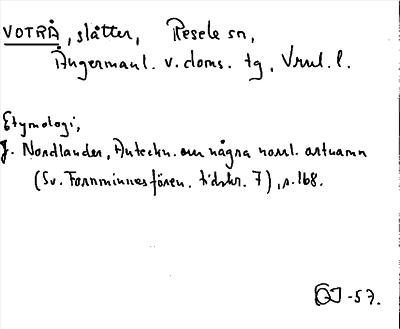 VOTRÅ, slåtter, Resele sn,
Ångermanl. v. doms. tg, Vnrl. l.
Etymologi,
J. Nordlander, Anteckn. om några norrl. ortnamn
(Sv. Fornminnesfören. tidskr. 7), s. 168.
-57.